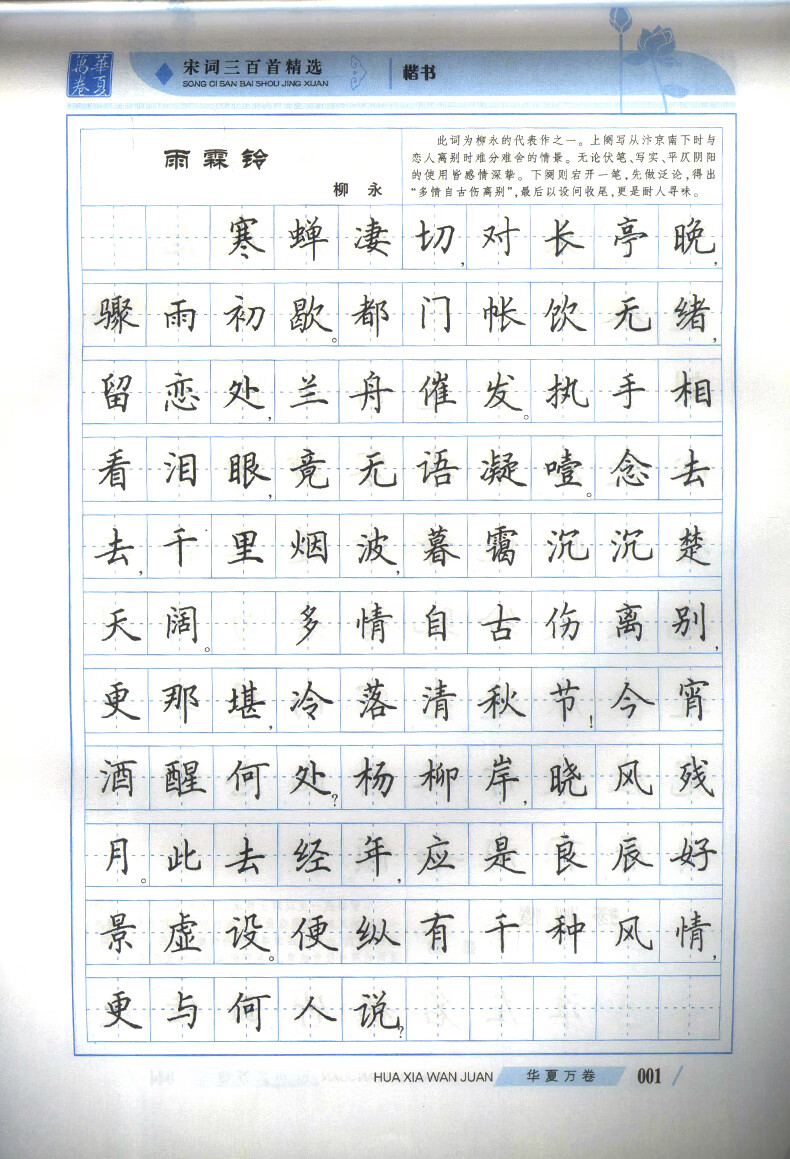 華夏萬卷
宋词三百首精选
SONG CI SAN BAI SHOU JING XUAN
楷书
雨霖铃
柳永
此词为柳永的代表作之一。上阕写从汴京南下时与
恋人离别时难分难舍的情景。无论伏笔、写实、平仄阴阳
的使用皆感情深挚。下阕则宕开一笔,先做泛论,得出
“多情自古伤离别”,最后以设问收尾,更是耐人寻味。
寒蝉凄切,对长亭晚,
骤雨初歇。都门帐饮无绪,
留恋处,兰舟催发。执手相
看泪眼,竟无语凝噎。念去
去,千里烟波,暮霭沉沉楚
天阔。 多情自古伤离别,
更那堪,冷落清秋节!今宵
酒醒何处?杨柳岸,晓风残
月。此去经年,应是良辰好
景虚设。便纵有千种风情,
更与何人说?
HUA XIA WAN JUAN
华夏万卷
001